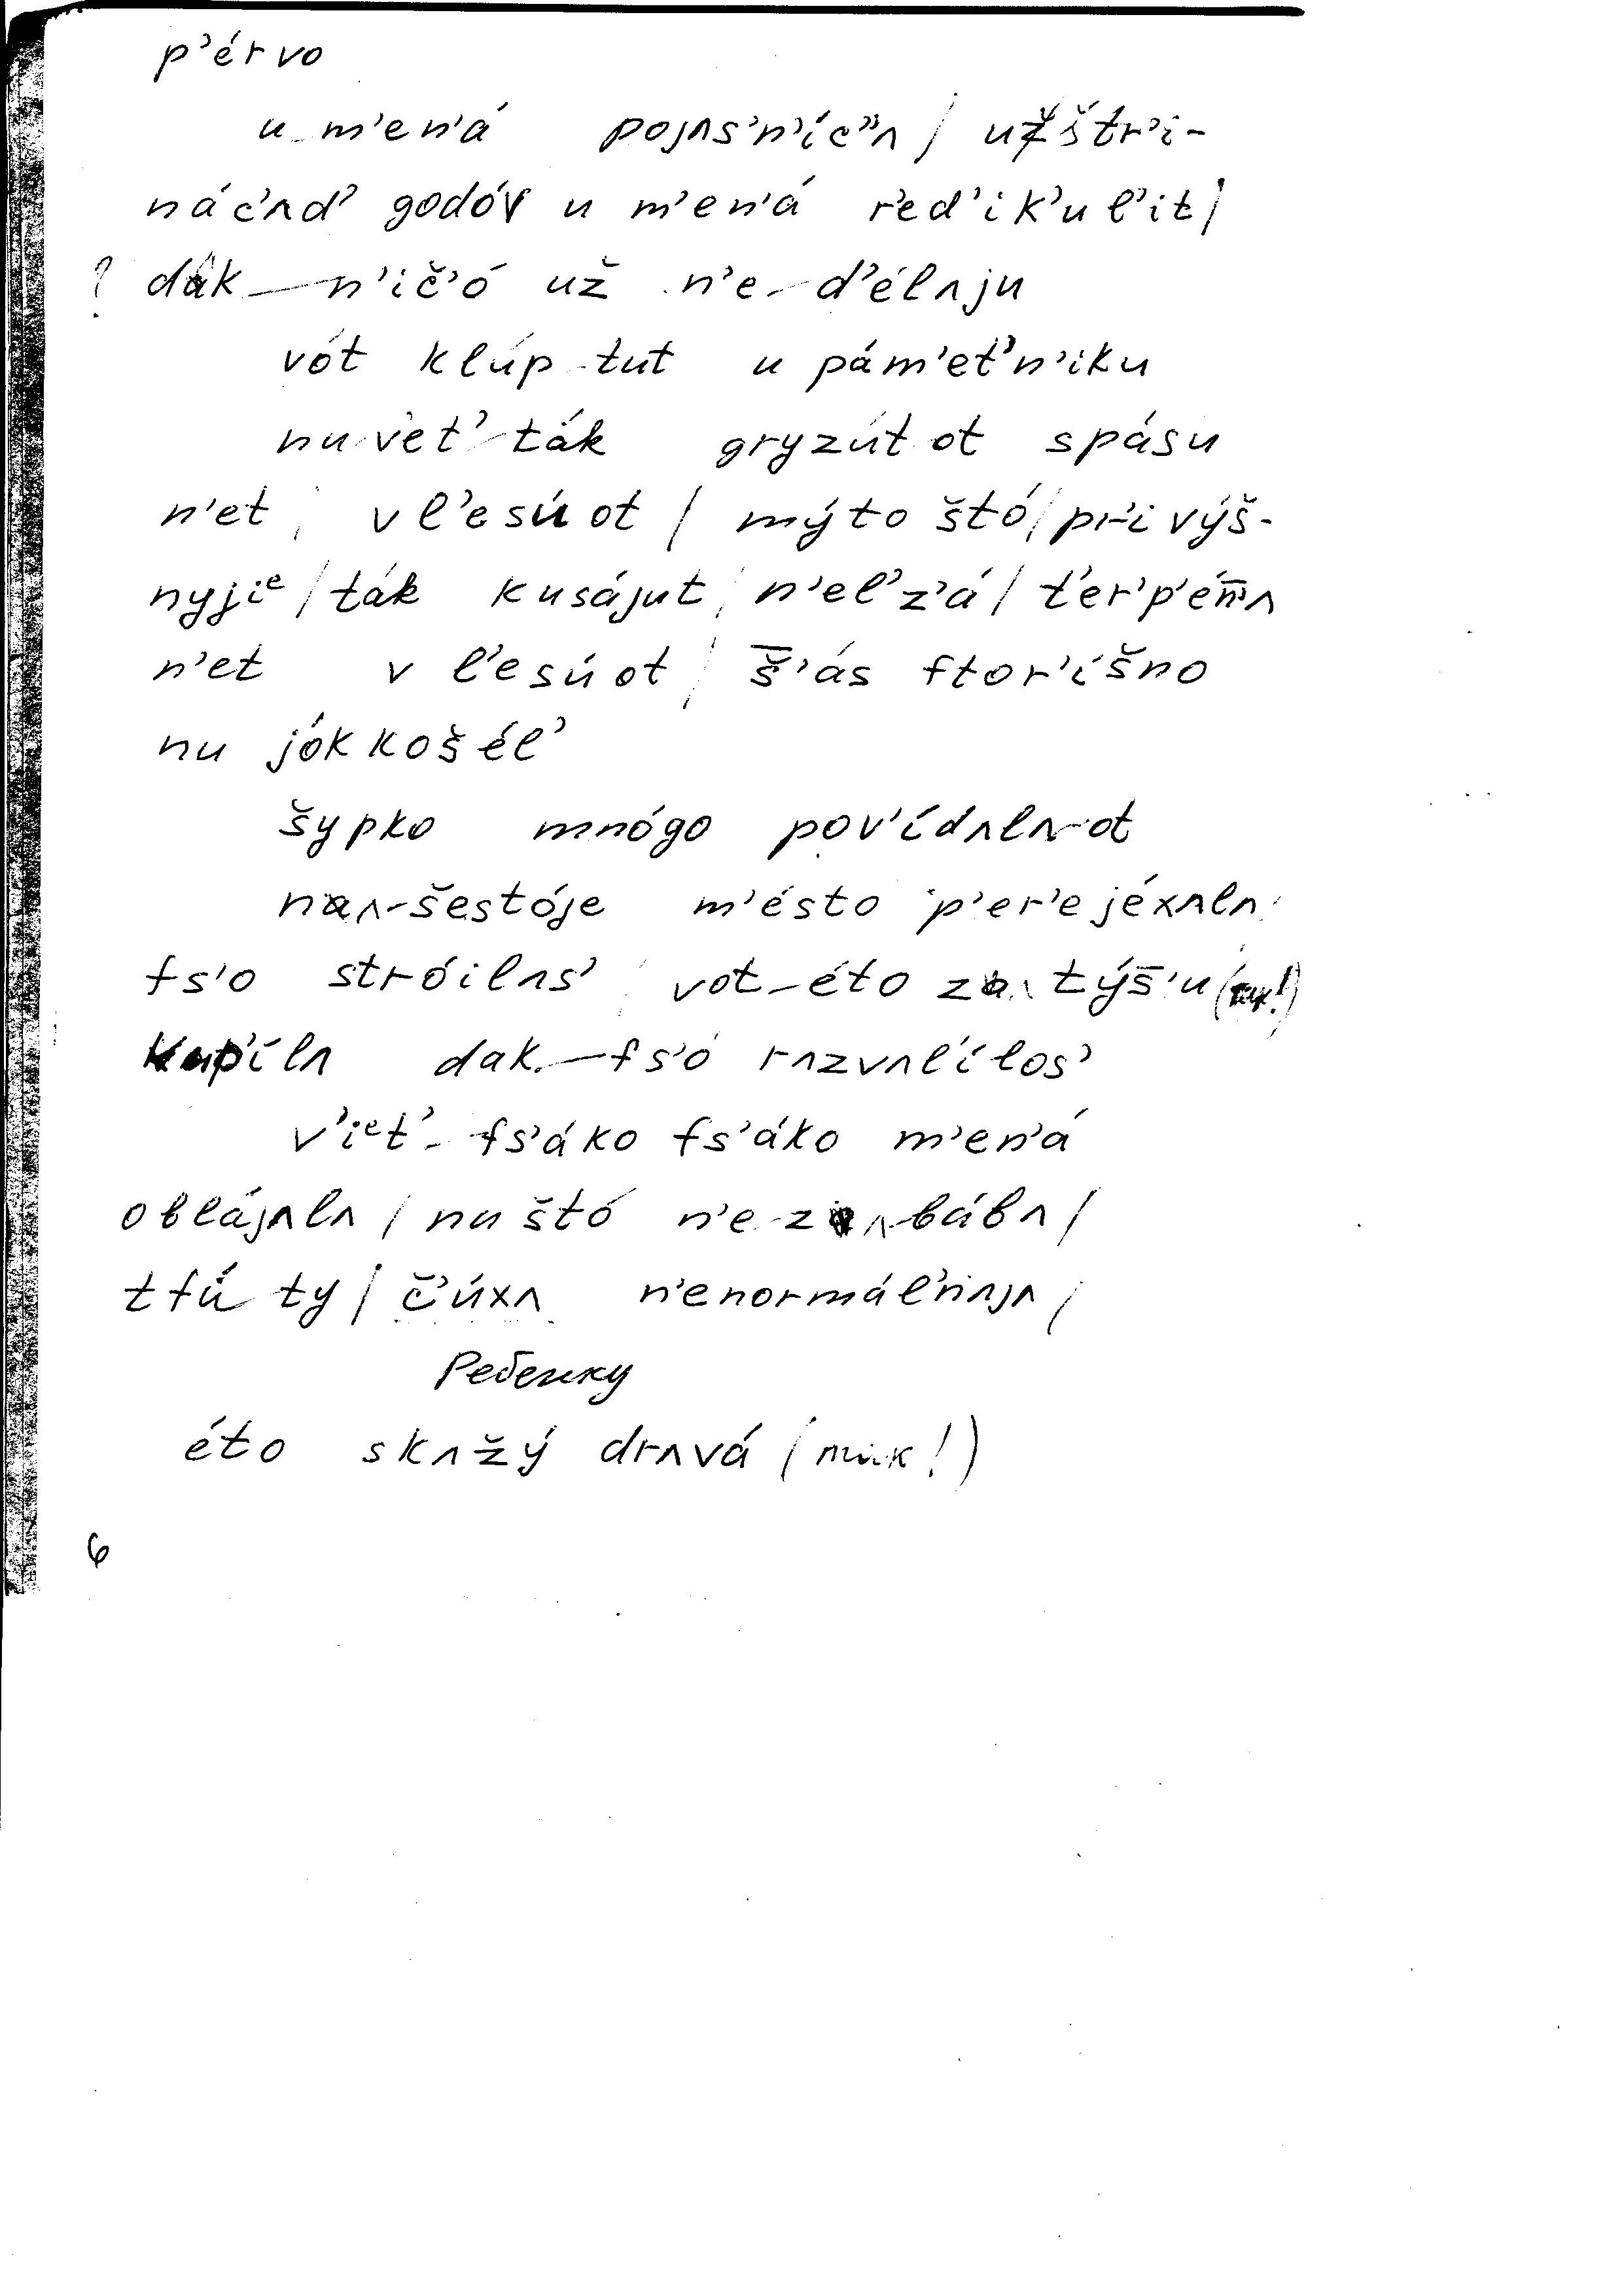 p’érvo
u m’en’á pojʌs’n’íc”ʌ / užštr’i-
nác’ʌd’ godóv u m’en’á r’ed’ik’ul’it /
? dak — n’ič’ó už n’e d’élʌju
vót klúp tut u pám’et’n’iku
nu v’et’ ták gryzút ot spásu
n’et v l’esú ot / mýto štó / pr’ivýš-
nyjiᵉ / ták kusájut n’el’z’á / t’er’p’én̅’ʌ
n’et v l’esú ot / š̅’ás ftor’íšno
nu jók košél’
šypko mnógo pov’ídʌlʌ-ot
nʌ-šestóje m’ésto p’er’ejéxʌlʌ
fs’o stróilʌs’ vot-éto zʌ týš̅’u (так!)
kup’ílʌ dak — fs’ó rʌzvʌl’ílos’
v’iᵉt’- fs’áko fs’áko m’en’á
oblájʌlʌ / nu štó n’e zʌ-bábʌ /
tfú ty / č’úxʌ n’enormál’nʌjʌ /
Ребенку
éto skʌžý drʌvá (так!)
6